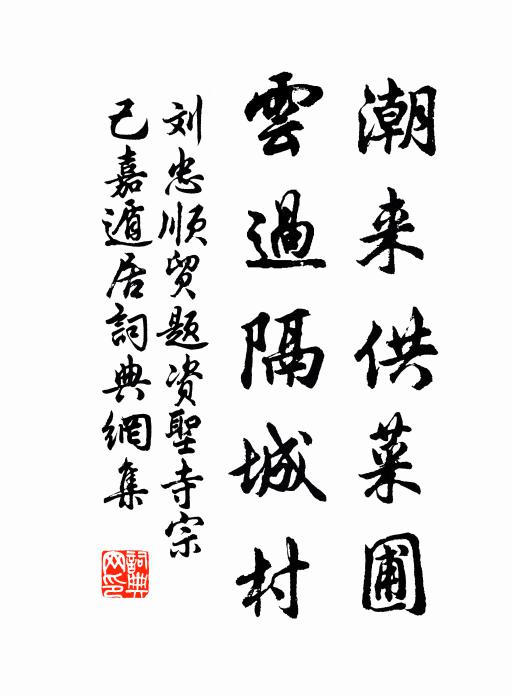 潮来供菜圃
雲過隔城村
刘忠順貿题资聖寺宗
己嘉遁居詞典網集
詞典
网印